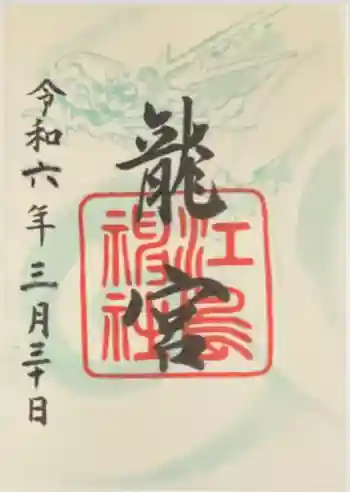 龍宮
江島神社
令和六年三月三十日